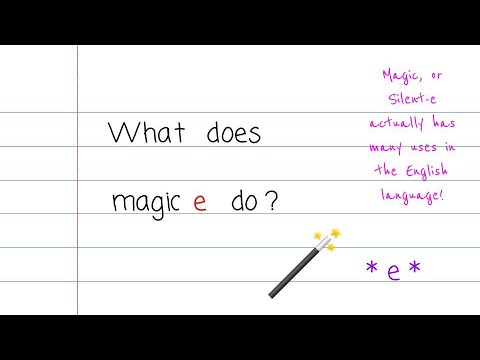 What does
magic e do?
Magic, or
Silent-e
actually has
many uses in
the English
language!
*e*